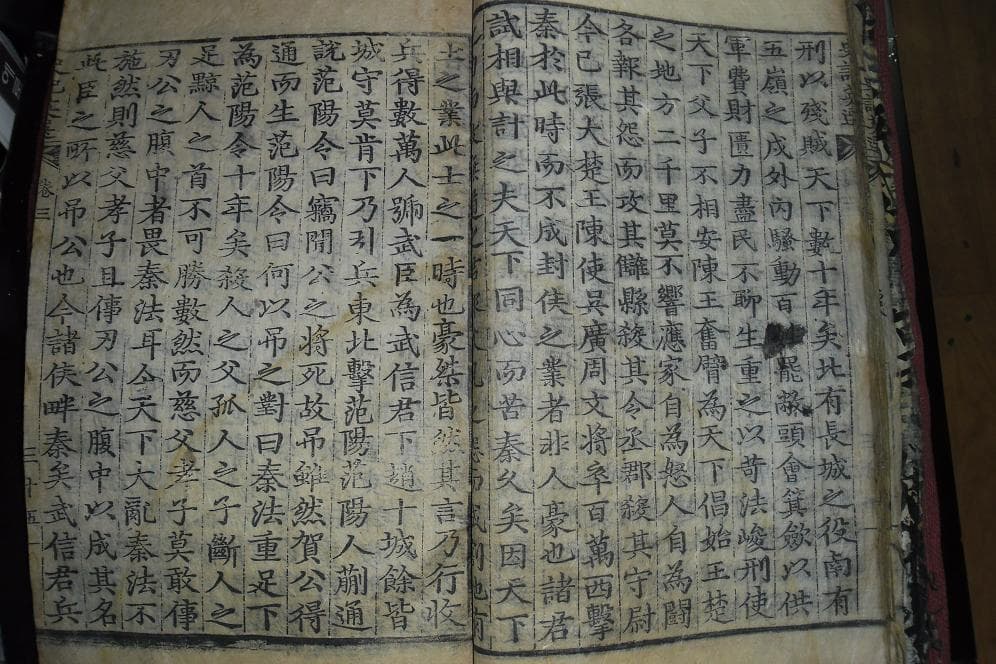 刑以殘賊天下數十年矣北有長城之役南有
五嶺之戍外內騷動百罷敝頭會箕歛以供
軍費財匱力盡民不聊生重之以苛法峻刑使
天下父子不相安陳王奮臂為天下倡始王楚
之地方二千里莫不響應家自為怒人自為鬪
各報其怨而攻其讎縣殺其令丞郡殺其守尉
今已張大楚王陳使吳廣周文將卒百萬西擊
秦於此時而不成封侯之業者非人豪也諸君
試相與計之夫天下同心而苦秦久矣因天下
之力而攻無道之君報父兄之怨而成割地有
土之業此士之一時也豪桀皆然其言乃行收
兵得數萬人號武臣為武信君下趙十城餘皆
城守莫肯下乃引兵東北擊范陽范陽人蒯通
說范陽令曰竊聞公之將死故吊雖然賀公得
通而生范陽令曰何以吊之對曰秦法重足下
為范陽令十年矣殺人之父孤人之子斷人之
足黥人之首不可勝數然而慈父孝子莫敢傳
刃公之腹中者畏秦法耳今天下大亂秦法不
施然則慈父孝子且傳刃公之腹中以成其名
此臣之所以吊公也今諸侯畔秦矣武信君兵
卷三
三十五